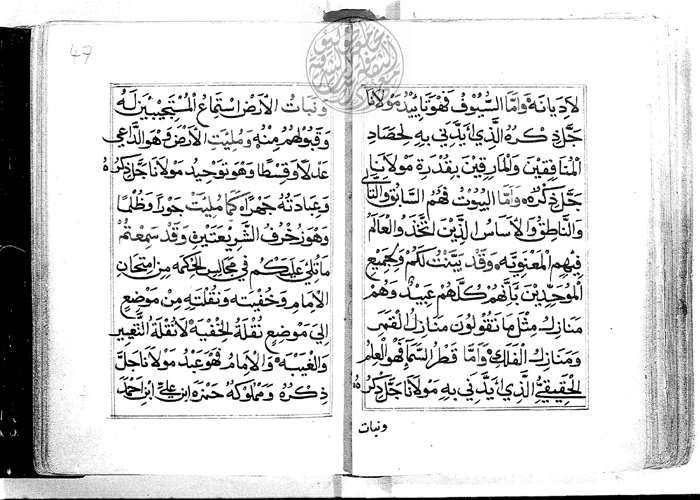 لاديانة وامّا السُّيُوف فَهُوَ تاييد مَوْلَانَا
جَلّ ذِكرُهُ الَّذِي أيَّدَنِي بِهِ لِحَصَاد
المُنَافِقِينَ وَالمَارِقِينَ بِقُدْرَةِ مَوْلَانَا
جَلَّ ذِكْرُهُ وَامَّا البُيُوتُ فَهُم السَّابق وَالتَّالي
وَالنَّاطِق وَالأَسَاسُ الَّذِينَ اتَّخَذُوا العَالَمُ
فِيهِم المَعْنَوِيَّه وَقَد بَيَّنْتُ لَكُمْ وَلِجَمِيع
المُوَحِّدِينَ بَأنَّهُم كُلَّهُم عَبِيدٌ وَهُمْ
مَنَازِلُ مِثْل مَا تَقُولُونَ مَنَازِلُ القَمَر
وَمَنَازِلُ الفَلَكِ وَامَّا قَطْرُ السَّمَا فَهُوَ العِلْمُ
الحَقِيقيُّ الَّذِي أيَّدَنِي بِهِ مَوْلَانَا جَلَّ ذِكرُهُ
ونبات
47
وَنَبَاتُ الأَرْضِ اسْتِمَاعُ المُسْتَجِيبِينَ لَهُ
وَقَبُولُهُمْ مِنْهُ وَمُلِيَتِ الأَرْضُ وَهُوَ الدَّاعِي
عَدْلًا وَقِسْطًا وَهُوَ تَوْحِيد مَوْلَانَا جَلَّ ذِكرُهُ
وَعِبَادَتُهُ جَهْرًا كَمَا مُلِيَتْ جَوْرًا وَظُلْمًا
وَهُوَ زُخْرُف الشَّرِيعَتَيْنِ وَقَدْ سَمِعْتُمْ
مَا تُلِيَ عَلَيْكُم فِي مَجَالِس الحِكْمَه مِن امْتِحَانِ
الإِمَامِ وَخُفْيَتِهِ وَنَقْلَتِهِ مِنْ مَوْضِعٍ
إِلَى مَوْضِعٍ نُقْلَةُ الخُفْيَه لَا نُقْلَةُ التَّغْيِير
وَالغَيْبَه وَالإِمَامُ فَهُوَ عَبْدُ مَوْلَانَا جَلَّ
ذِكْرُهُ وَمَمْلُوكُهُ حَمْزَه ابن علي ابن احمد